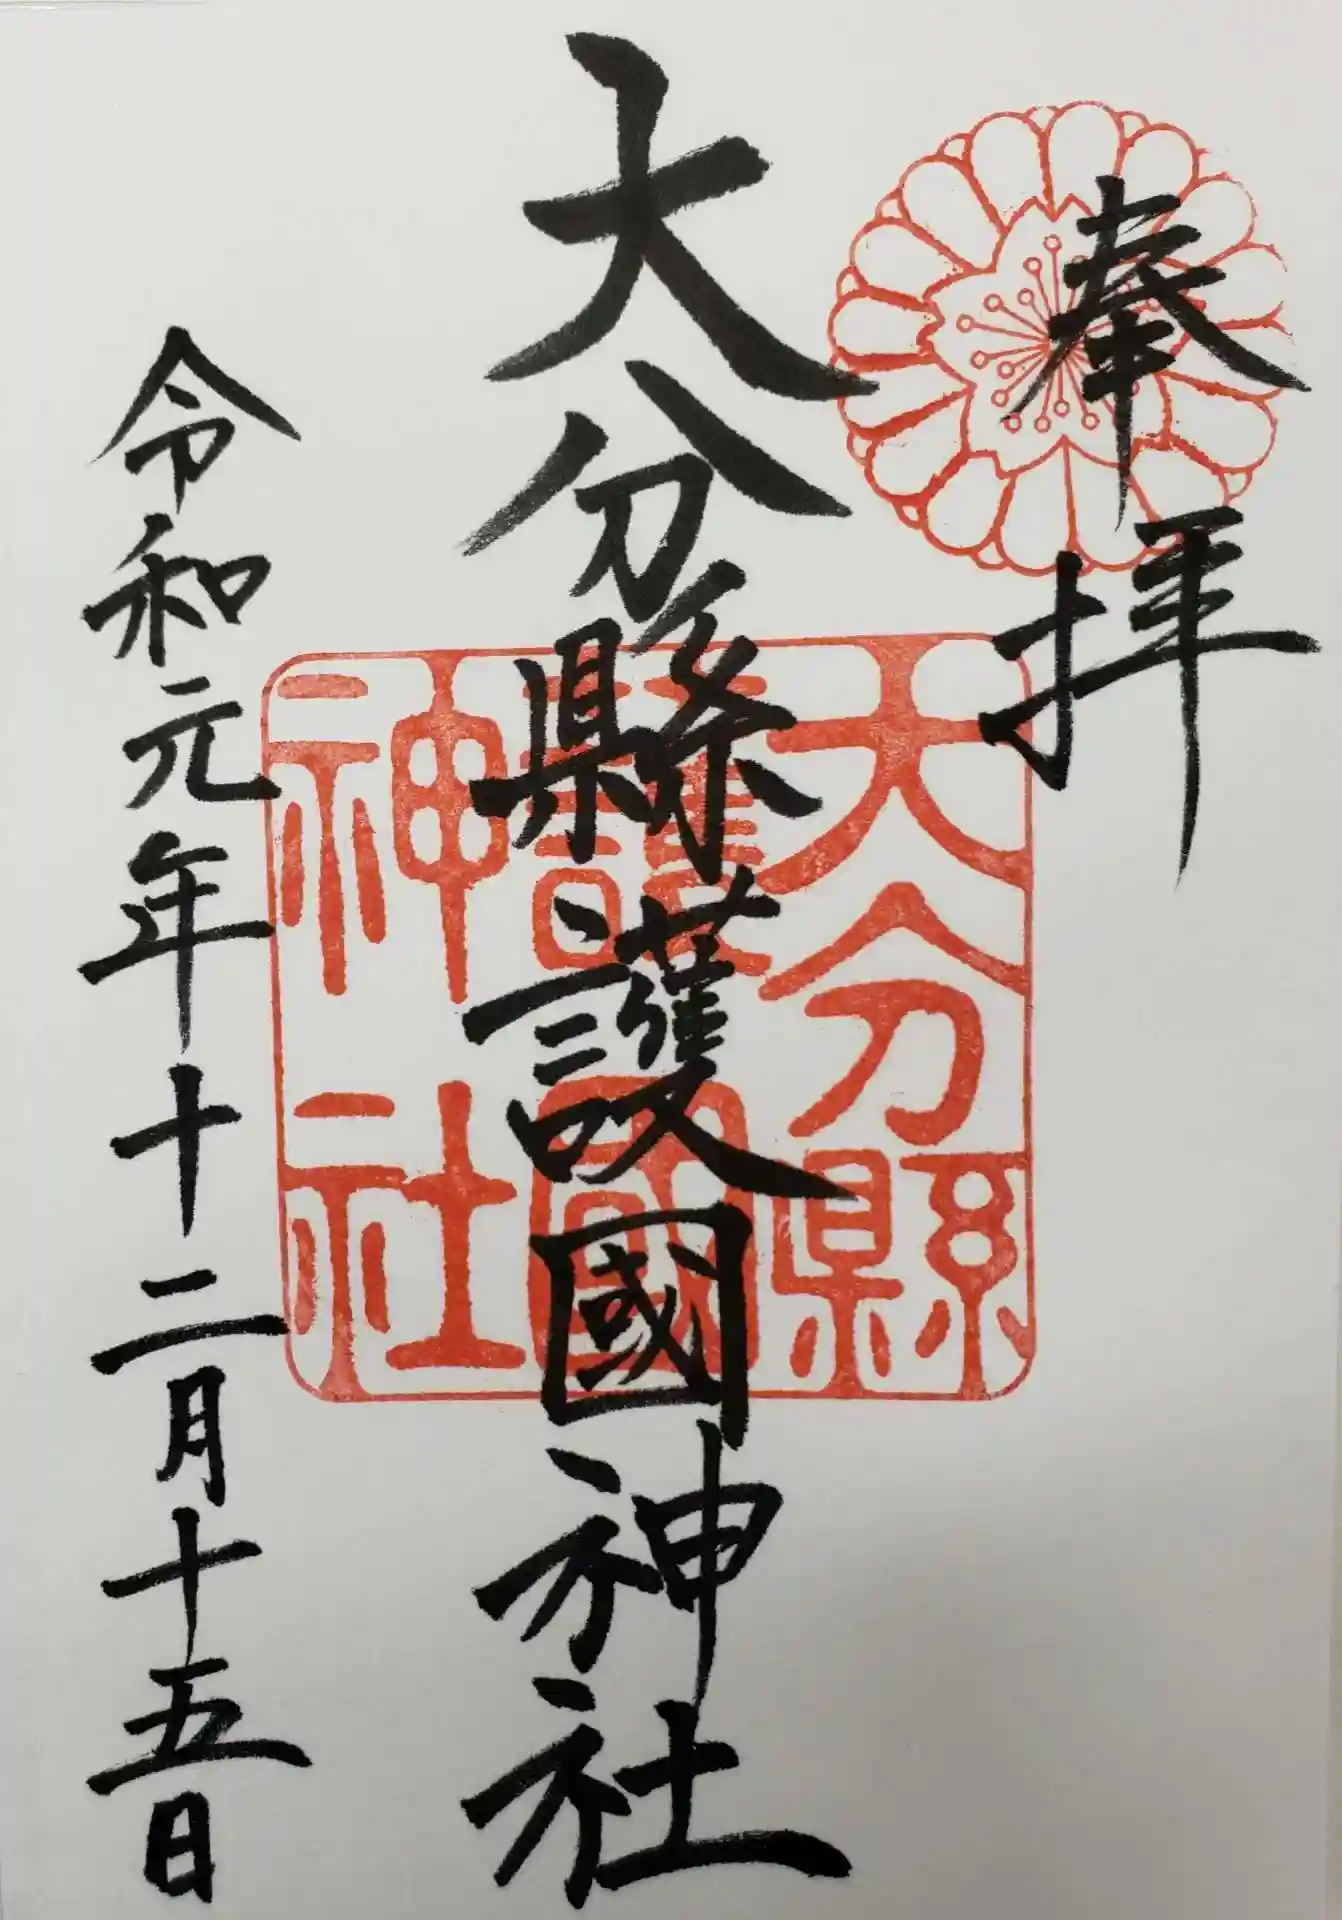 奉拝
大分縣護國神社
大分縣
護國
神社
令和元年十二月十五日